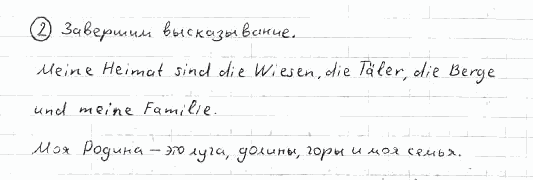 ② Завершим высказывание.
Meine Heimat sind die Wiesen, die Täler, die Berge
und meine Familie.
Моя Родина – это луга, долины, горы и моя семья.